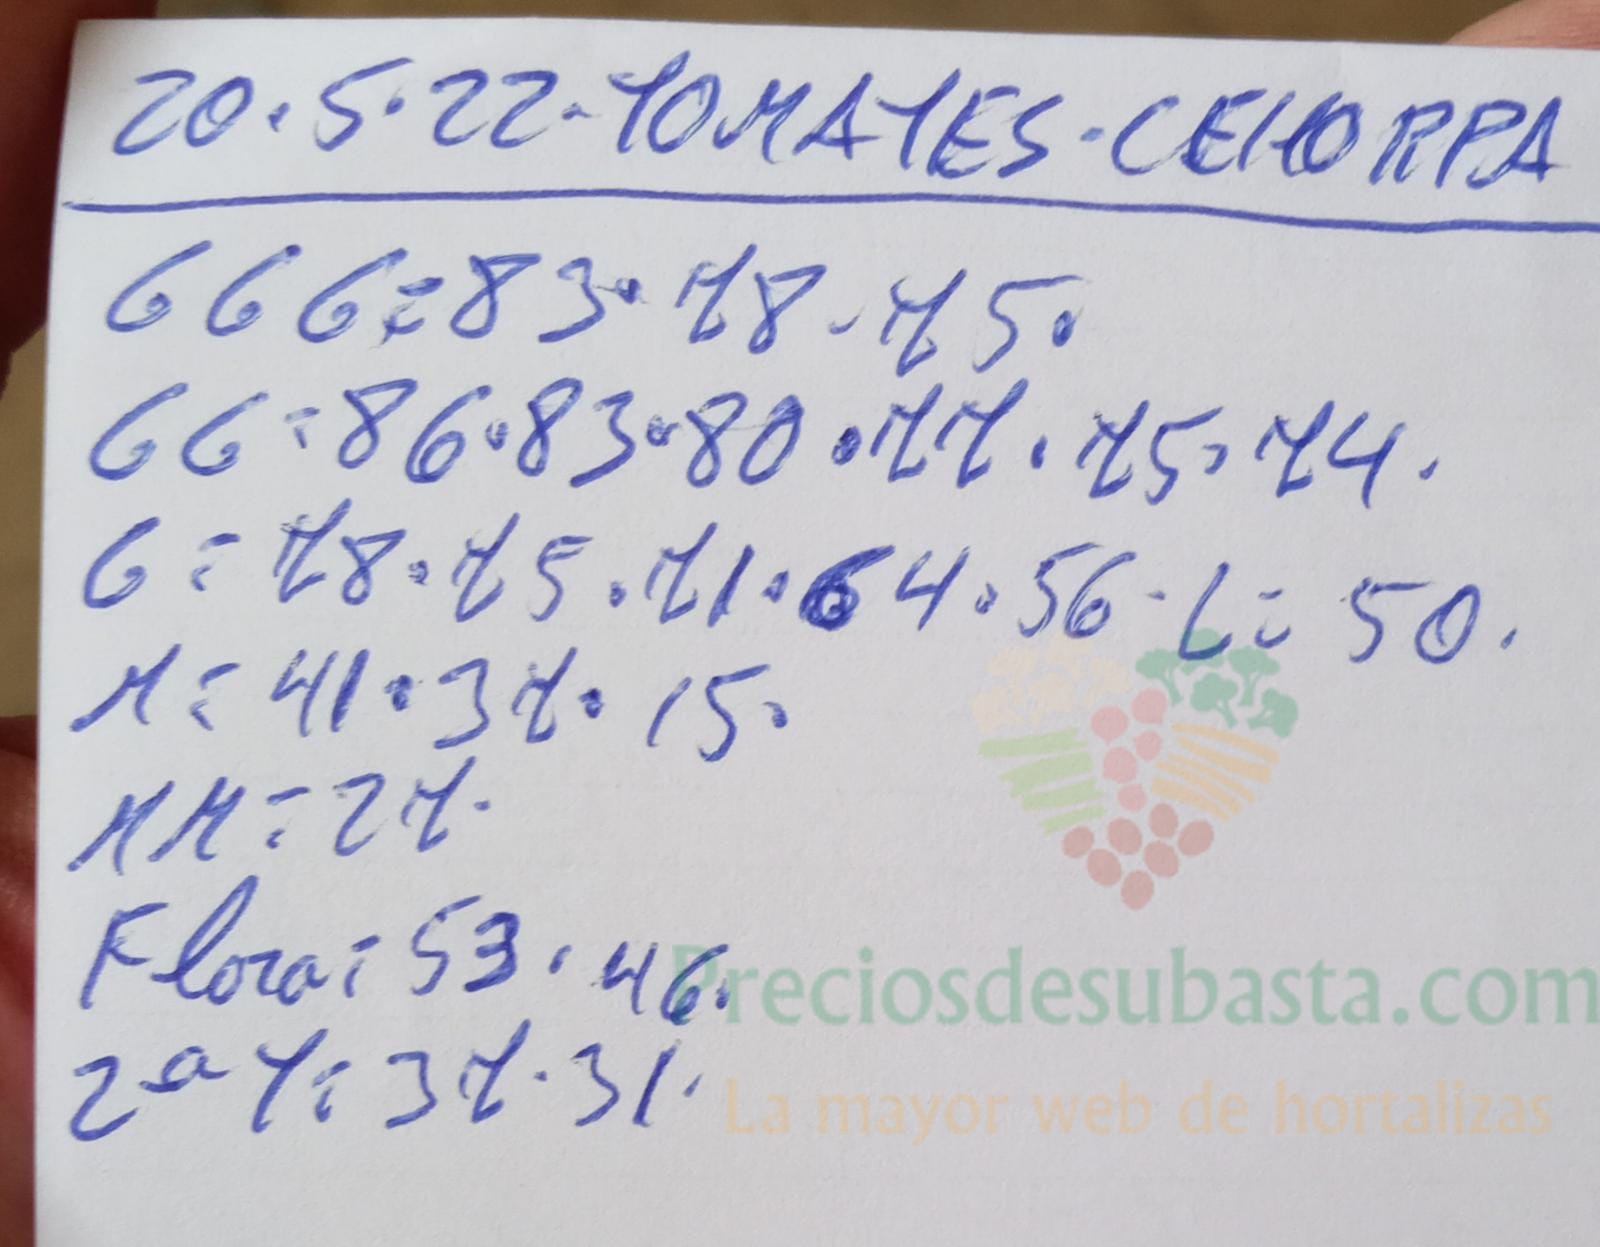 20.5.22-TOMATES-CEHORPA
GGG=83.78.75.
GG=86.83.80.77.75.74.
G=78.75.71.64.56-L=50.
M=41.37.15.
MM=27.
Flora=53.46.
2ª T=37.31.
Preciosdesubasta.com
La mayor web de hortalizas